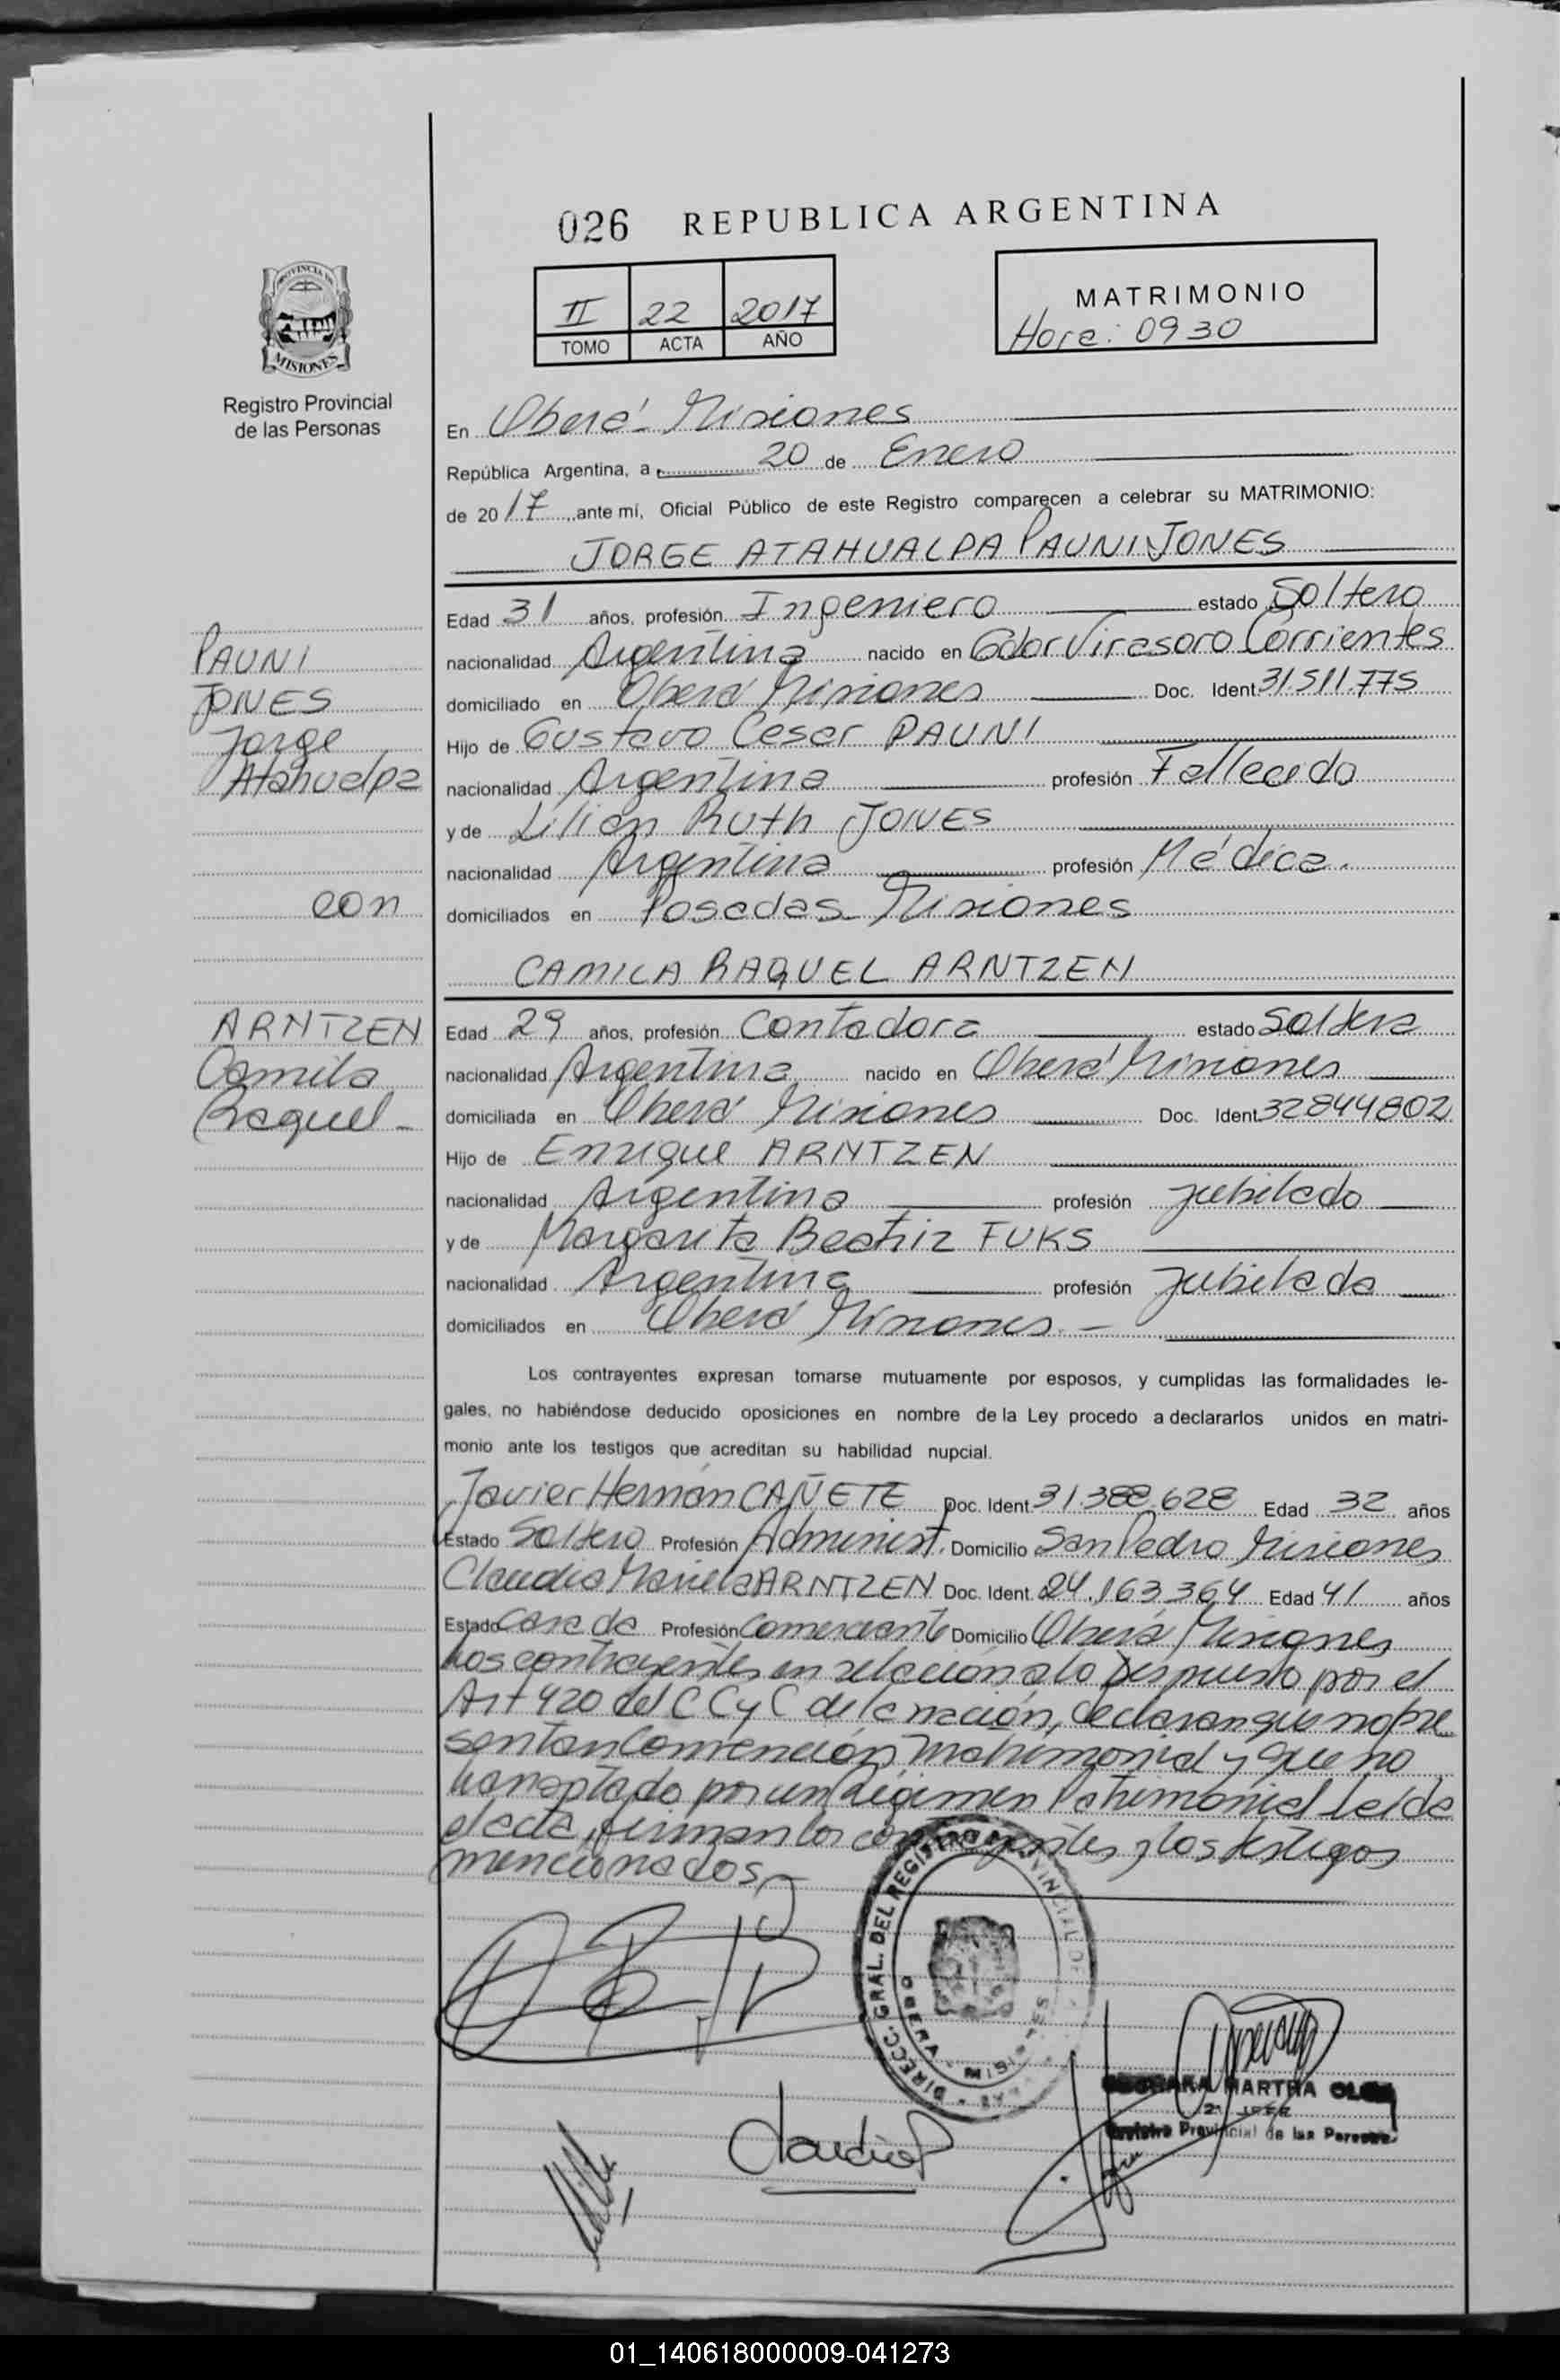 026 REPUBLICA ARGENTINA
PROVINCIA DE
MISIONES
Registro Provincial
de las Personas
II 22 2017
TOMO ACTA AÑO
MATRIMONIO
Hora: 0930
En Oberá - Misiones
República Argentina, a 20 de Enero
de 2017, ante mí, Oficial Público de este Registro comparecen a celebrar su MATRIMONIO:
JORGE ATAHUALPA PAUNI JONES
Edad 31 años, profesión Ingeniero estado Soltero
nacionalidad Argentina nacido en Gdor Virasoro Corrientes
domiciliado en Oberá Misiones Doc. Ident. 31.511.775
Hijo de Gustavo Cesar PAUNI
nacionalidad Argentina profesión Fallecido
y de Lilian Ruth JONES
nacionalidad Argentina profesión Médica.
domiciliados en Posadas Misiones
PAUNI
JONES
Jorge
Atahualpa
con
ARNTZEN
Camila
Raquel -
CAMILA RAQUEL ARNTZEN
Edad 29 años, profesión Contadora estado Soltera
nacionalidad Argentina nacido en Oberá Misiones
domiciliada en Oberá Misiones Doc. Ident. 32844802
Hijo de Enrique ARNTZEN
nacionalidad Argentina profesión jubilado
y de Margarita Beatriz FUKS
nacionalidad Argentina profesión Jubilada
domiciliados en Oberá Misiones. -
Los contrayentes expresan tomarse mutuamente por esposos, y cumplidas las formalidades le-
gales, no habiéndose deducido oposiciones en nombre de la Ley procedo a declararlos unidos en matri-
monio ante los testigos que acreditan su habilidad nupcial.
Javier Hernán CAÑETE Doc. Ident. 31.388.628 Edad 32 años
Estado Soltero Profesión Administ. Domicilio San Pedro Misiones
Claudia Mariela ARNTZEN Doc. Ident. 24.163.364 Edad 41 años
Estado Casada Profesión Comerciante Domicilio Oberá Misiones
Los contrayentes en relación a lo Dispuesto por el
Art 420 del CCyC de la nación, declaran que no pre
sentan Convención Matrimonial y que no
han optado por un Régimen Patrimonial Leída
el acta, firman los contrayentes y los testigos
mencionados
DIRECC. GRAL. DEL REGISTRO PROVINCIAL DE
OBERA - MISIONES
Claudia
MARTHA OLGA
2° JEFE
Registro Provincial de las Personas
01_140618000009-041273